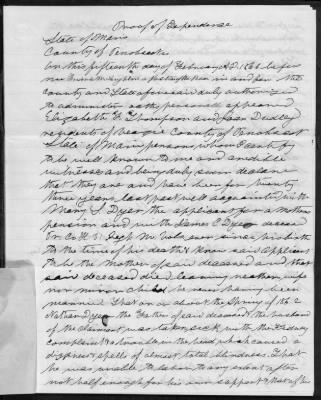 Proof of Dependence
State of Maine
County of Penobscot
On this fifteenth day of February A.D. 1866 before
me a in and for the
County and State aforesaid duly authorized
to administer oaths, personally appeared
Elizabeth G. Thompson and Dudley
residents of Veazie County of Penobscot
State of Maine persons, whom I certify
to be well known to me and credible
witnesses and being duly sworn declare
that they are and have been for twenty
three years last past well acquainted with
Mary S. Dyer the applicant for a mothers
pension and with James Dyer deceased
Co. H. Regt Me Vols ever since his birth
to the time of his death, know said applicant
to be the mother of said deceased and that
said deceased died leaving neither wife
nor minor child he never having been
married That on or about the Spring of 1862
Nathan Dyer the Father of said deceased & the husband
of the claimant was taken sick with the Kidney
complaint & a trouble in the head which caused a
dizziness & spells of almost total blindness. That
he was unable to labor to any extent after
not half enough for his own support & that of his